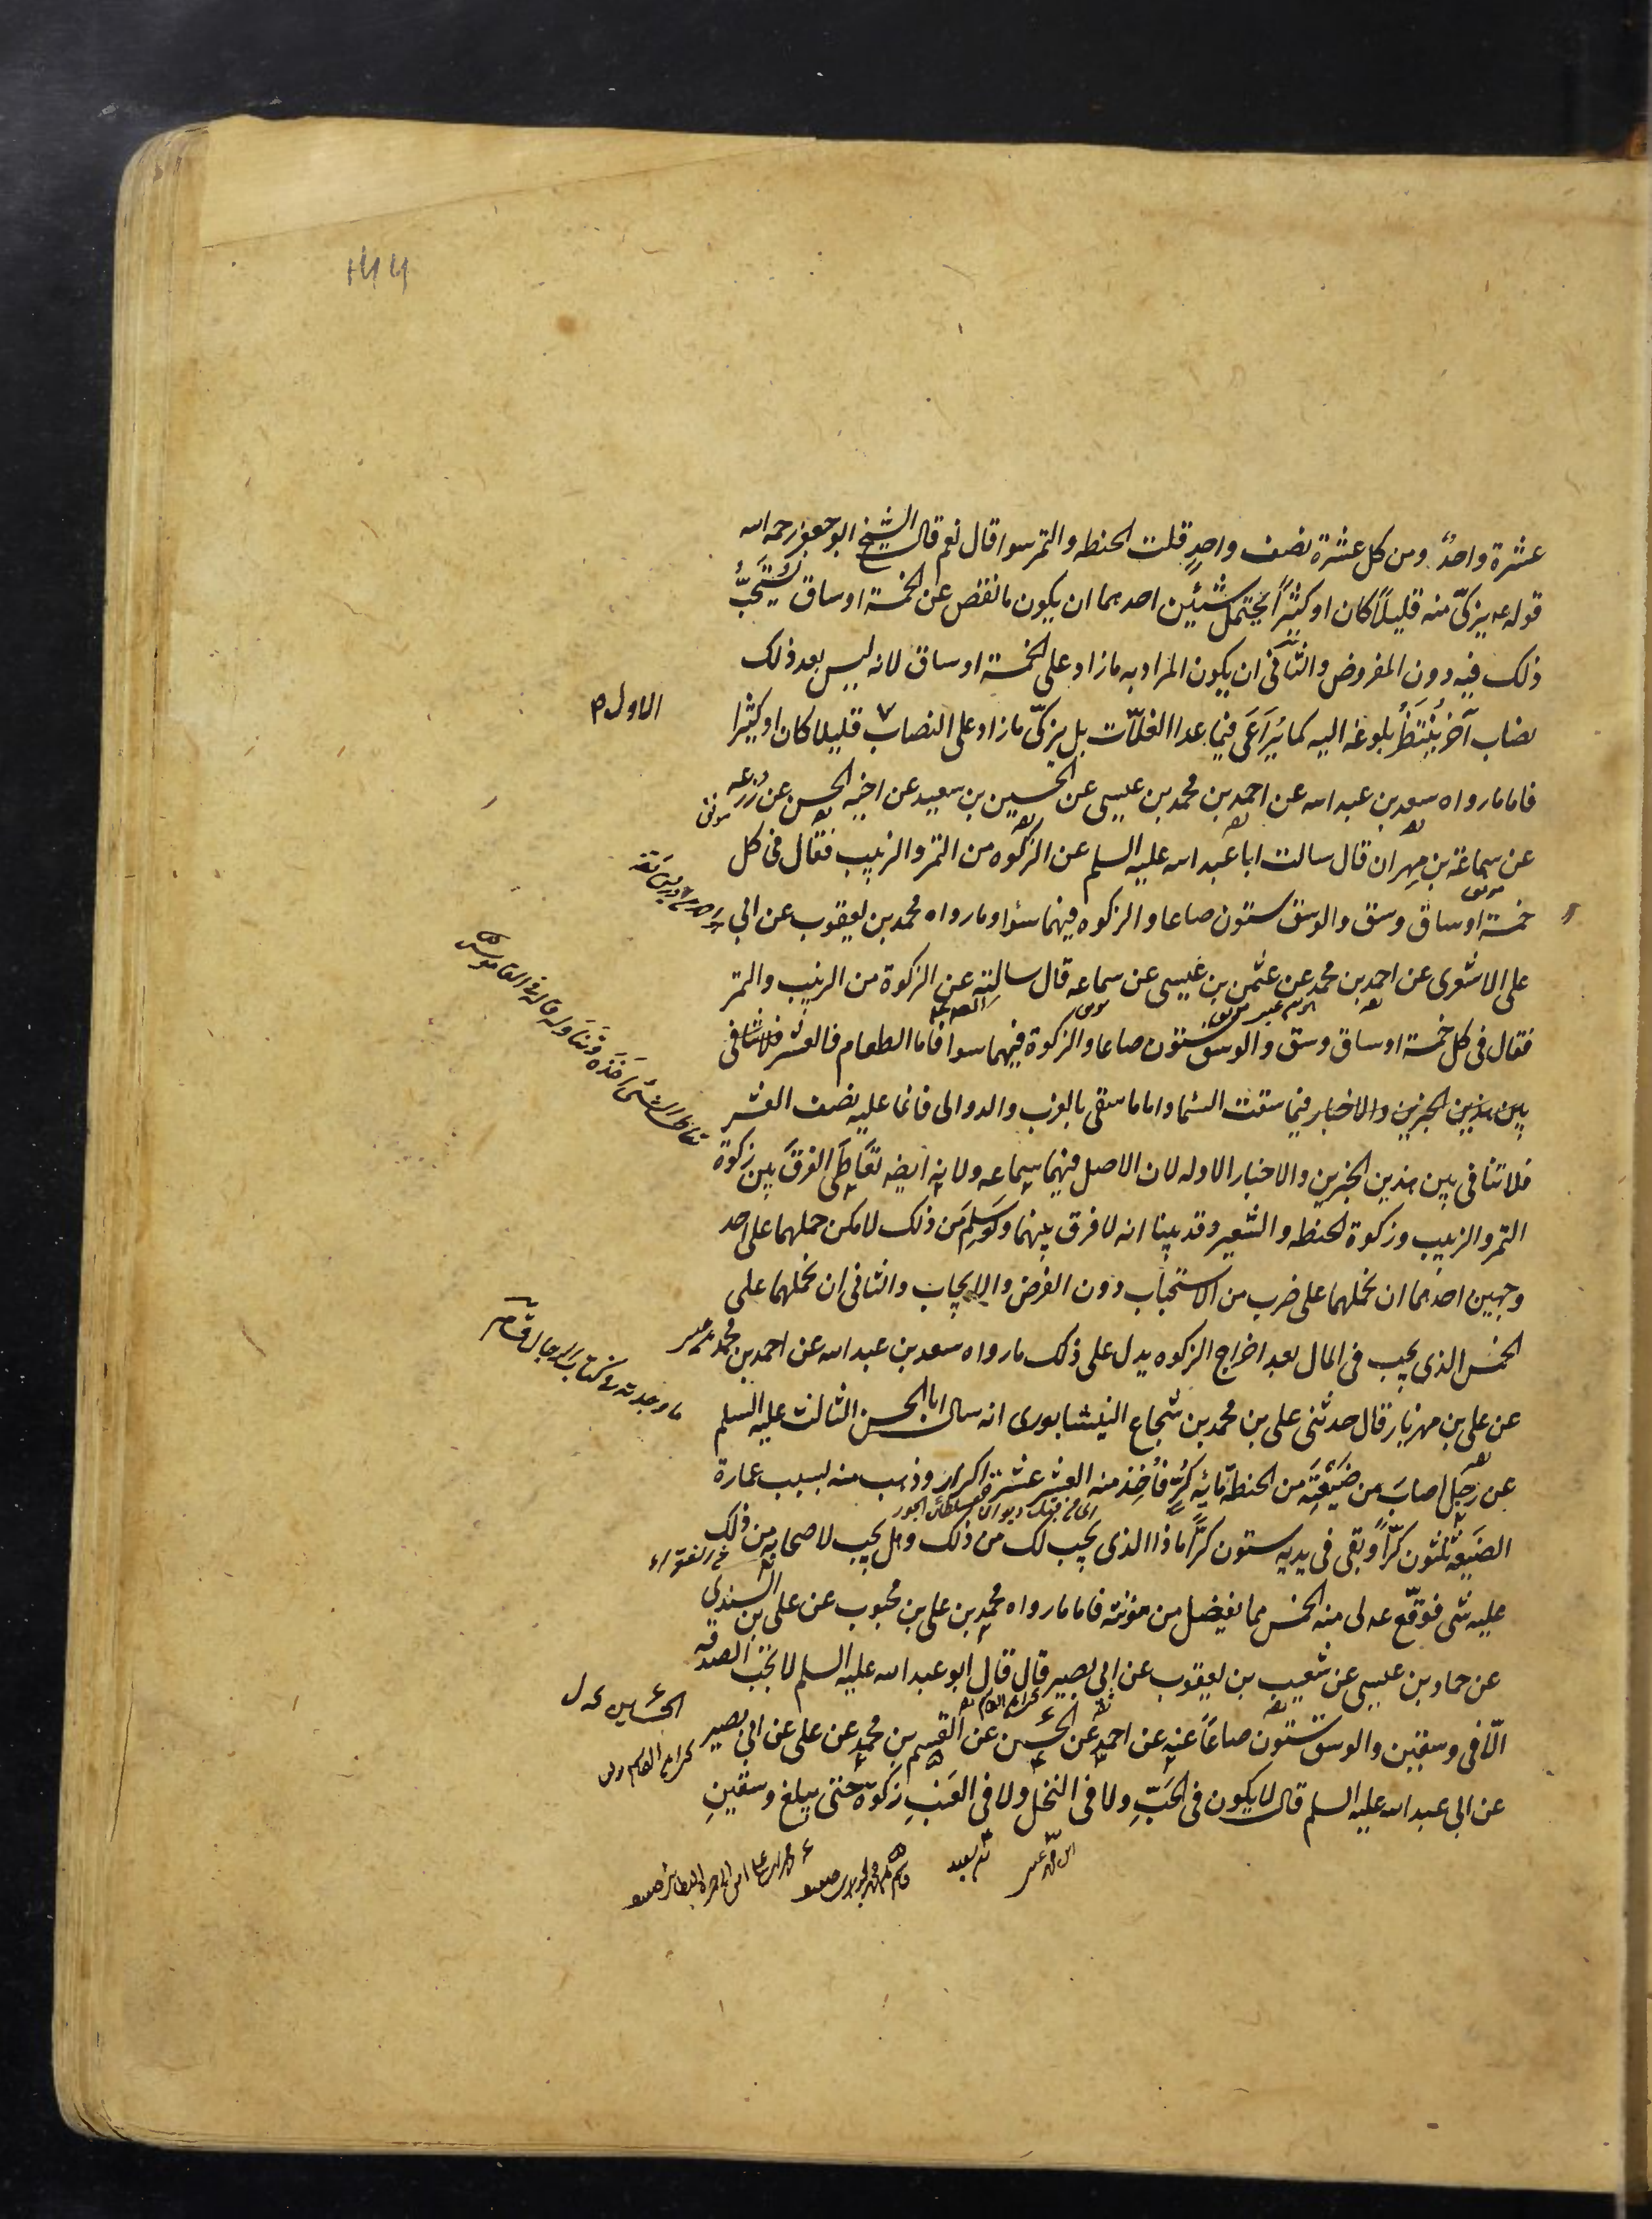 ١٤٤
عشرة واحدٌ ومن كل عشرة نصف واحدٍ قلت الحنطه والتمر سوا قال نعم قال الشيخ ابو جعفر رحمه الله
قوله ع يزكّى منه قليلاً كان او كثيراً يحتمل شيئين احدهما ان يكون ما نقص عن الخمسة اوساق يُستَحَبُّ
ذلك فيه دون المفروض والثانى ان يكون المراد به ما زاد على الخمسة اوساق لانه ليس بعد ذلك
نصاب آخر يُنتَظَرُ بلوغه اليه كما يُرَاعَى فيما عدا الغلّات بل يزكّى ما زاد على النصاب قليلا كان او كثيرا
الاول ص
فاما ما رواه سعد بن عبد الله عن احمد بن محمد بن عيسى عن الحسين بن سعيد عن اخيه الحسن عن زرعه
عن سماعة بن مِهران قال سالت ابا عبد الله عليه السلم عن الزكوه من التمر والزبيب فقال فى كل
خمسة اوساق وسق والوسق ستون صاعا والزكوه فيهما سوا وما رواه محمد بن يعقوب عن ابى
على الاشعرى عن احمد بن محمد عن عثمن بن عيسى عن سماعه قال سالته عن الزكوة من الزبيب والتمر
فقال فى كل خمسة اوساق وسق والوسق ستون صاعا والزكوة فيهما سوا فاما الطعام فالعشر فلا تنافى
بين هذين الخبرين والاخبار فيما سقت السماء واما ما سقى بالغرب والدوالى فانما عليه نصف العشر
فلا تنافى بين هذين الخبرين والاخبار الاوله لان الاصل فيهما سماعه ولانه ايضه تعَاطَى الفرقَ بين زكوة
التمر والزبيب وزكوة الحنطه والشعير وقد بينا انه لا فرق بينهما ولو سَلِمَ من ذلك لامكن حملهما على احد
وجهين احدهما ان نحملهما على ضرب من الاستحباب دون الفرض والايجاب والثانى ان نحملهما على
الخمس الذى يجب فى المال بعد اخراج الزكوه يدل على ذلك ما رواه سعد بن عبد الله عن احمد بن محمد
عن على بن مهزيار قال حدثنى على بن محمد بن شجاع النيشابورى انه سال ابا الحسن الثالث عليه السلم
عن رجل اصابَ من ضيعتِه من الحنطة مائة كُرٍّ فأُخِذ منه العشر عشرة اكرار وذهب منه بسبب عمارة
الضيعه ثلثون كرّاً وبقى فى يديه ستون كرّاً ماذا الذى يجب لك من ذلك وهل يجب لاصحابه من ذلك
عليه شى فوقّع ع لى منه الخمس مما يفضل من مؤنته فاما ما رواه محمد بن على بن محبوب عن على بن السندى
عن حماد بن عيسى عن شعيب بن يعقوب عن ابى بصير قال قال ابو عبد الله عليه السلم لا تجب الصدقه
الّا فى وسقين والوسق ستون صاعاً عنه عن احمد عن الحسين عن القسم بن محمد عن على عن ابى بصير
عن ابى عبد الله عليه السلم قال لا يكون فى الحَبّ ولا فى النخل ولا فى العنب زكوة حتى يبلغ وسقين